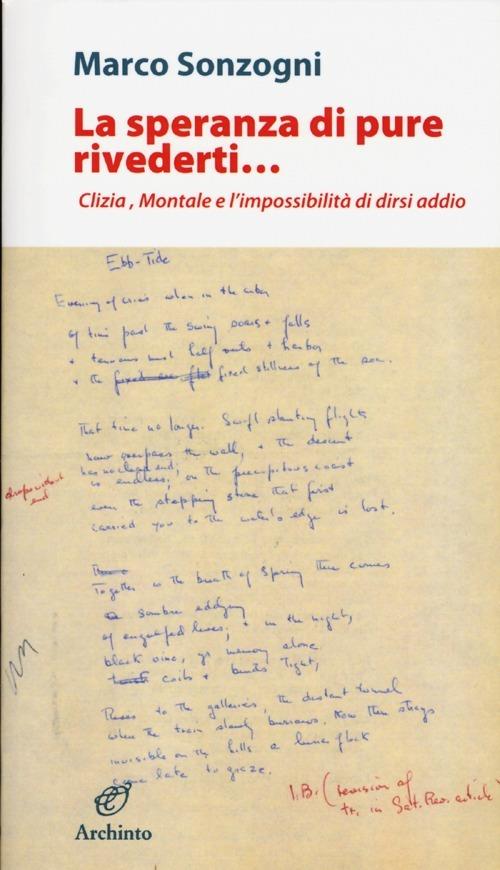 Marco Sonzogni
La speranza di pure
rivederti...
Clizia , Montale e l'impossibilità di dirsi addio
Ebb-Tide
Evening of cries when in the
of time past the swing soars + falls
+ half +
+ the fixed stillness of the sea.
That time no longer. Swift slanting flights
now overpass the wall, + the descent
has no end;
is endless; on the precipitous coast
drops without
end
even the stepping stone that first
carried you to the water's edge is lost.
Together w the breath of Spring there comes
a sombre eddying
of engulfed lives; + in the night,
black vine, yr memory alone
coils + binds tight,
Rises to the galleries, the distant tunnel
when the train slowly burrows. Now then strays
invisible on the hills a lunar flock
come late to graze.
I.B. (revision of
tr. in Sat. Rev. article
Archinto